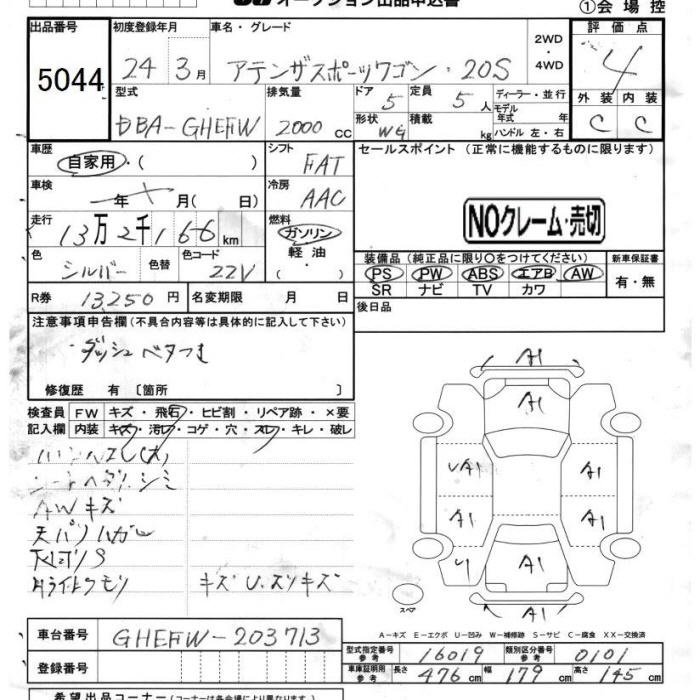 オークション出品申込書
①会場控
出品番号 5044
初度登録年月 24 3月
車名・グレード アテンザスポーツワゴン・20S
2WD・4WD
評価点 4
外装 内装
C C
型式 DBA-GHEFW
排気量 2000 cc
ドア 5
定員 5人
ディーラー・並行
モデル年式 年
形状 WG
積載 kg
ハンドル 左・右
車歴 自家用・( )
シフト FAT
セールスポイント (正常に機能するものに限ります)
車検 年 月( 日)
冷房 AAC
NOクレーム・売切
走行 13万2千166km
燃料 ガソリン 軽油 ・( )
色 シルバー
色替
色コード 22V
装備品 (純正品に限り〇をつけてください)
新車保証書
PS PW ABS エアB AW
SR ナビ TV カワ
有・無
R券 13,250円
名変期限 月 日
後日品
注意事項申告欄(不具合内容等は具体的に記入して下さい)
ダッシュベタつき
修復歴 有〔箇所 〕
検査員記入欄
FW キズ・飛石・ヒビ割・リペア跡・×要
内装 キズ・汚レ・コゲ・穴・スレ・キレ・破レ
AWキズ
下回りS
キズU.スリキズ
A1
A1
UA1 A1
A1 A1
A1
A1
スペア
A-キズ E-エクボ U-凹み W-補修跡 S-サビ C-腐食 XX-交換済
車台番号 GHEFW-203713
登録番号
型式指定番号 参考 16019
類別区分番号 参考 0101
車庫証明用 参考 長さ 476cm 幅 179cm 高さ 145cm
希望出品コーナー(コーナーは各会場により異なります)